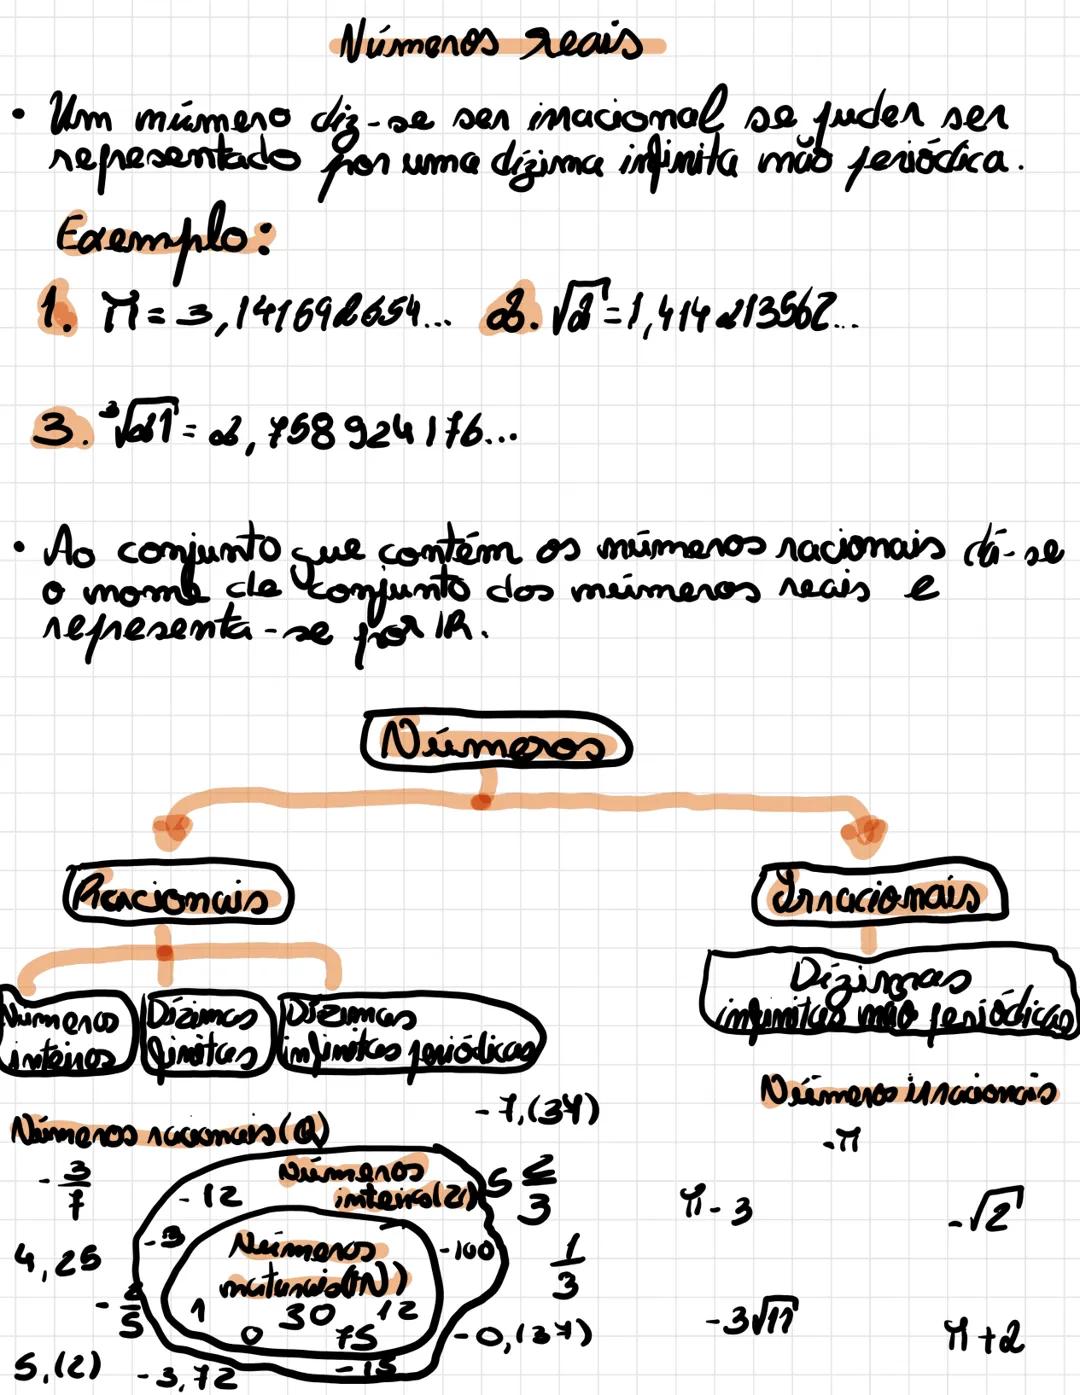 Números reais
• Um número diz-se ser irracional se puder ser
representado por uma dízima infinita não periódica.
Exemplo:
1. π = 3,141592654... 2. √2 = 1,414213562...
3. ³√21 = 2,758924176...
• Ao conjunto que contém os números racionais dá-se
o nome de conjunto dos números reais e
representa-se por IR.
Números
Racionais
Irracionais
Números
inteiros
Dízimas
finitas
Dízimas
infinitas periódicas
Dízimas
infinitas não periódicas
Números irracionais
-π
π-3
-√2
-3√11
π+2
Números racionais (Q)
-7,(34)
-3/7
4,25
-2/5
5,(2)
-3,72
5 2/3
1/3
-0,(37)
Números
inteiros (Z)
-12
-3
-100
-15
Números
naturais (IN)
1
30
12
0
75